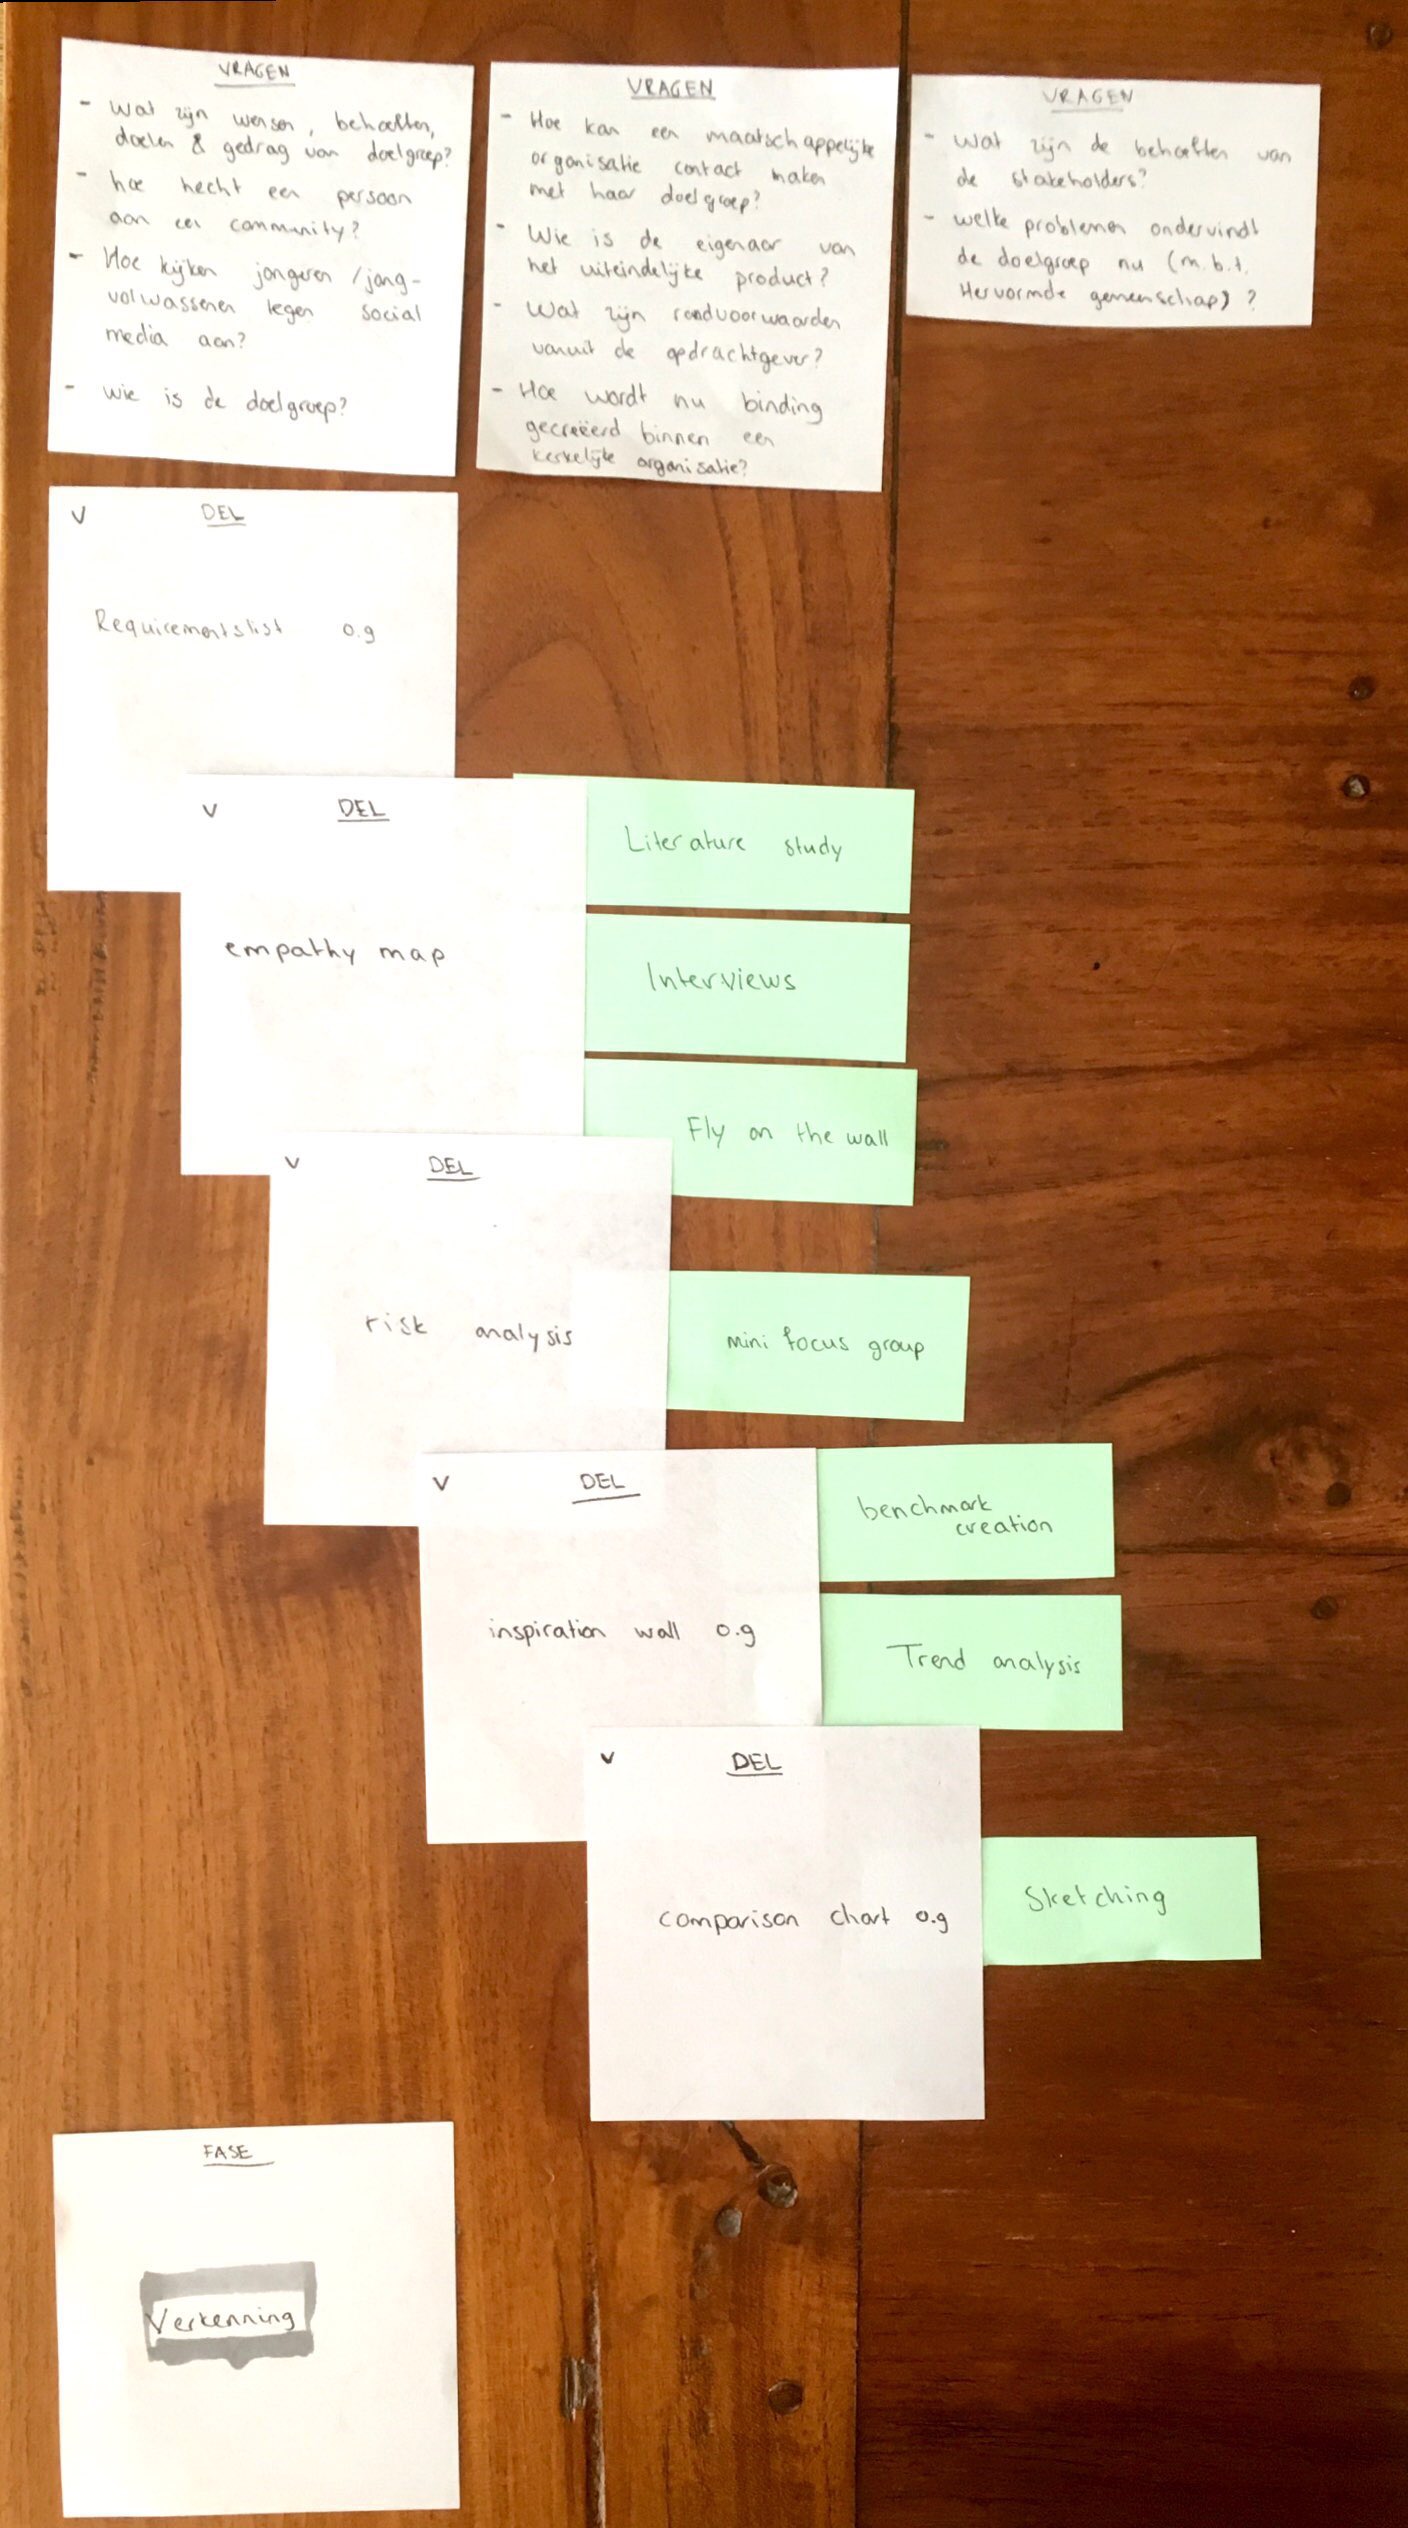 VRAGEN
- Wat zijn wensen, behoeften,
doelen & gedrag van doelgroep?
- hoe hecht een persoon
aan een community?
- Hoe kijken jongeren / jong-
volwassenen tegen social
media aan?
- wie is de doelgroep?
VRAGEN
- Hoe kan een maatschappelijke
organisatie contact maken
met haar doelgroep?
- Wie is de eigenaar van
het uiteindelijke product?
- Wat zijn randvoorwaarden
vanuit de opdrachtgever?
- Hoe wordt nu binding
gecreëerd binnen een
kerkelijke organisatie?
VRAGEN
- Wat zijn de behoeften van
de stakeholders?
- welke problemen ondervindt
de doelgroep nu (m.b.t.
Hervormde gemeenschap)?
V DEL
Requirementslist o.g
V DEL
empathy map
Literature study
Interviews
Fly on the wall
V DEL
risk analysis
mini focus group
V DEL
inspiration wall o.g
benchmark
creation
Trend analysis
V DEL
comparison chart o.g
Sketching
FASE
Verkenning